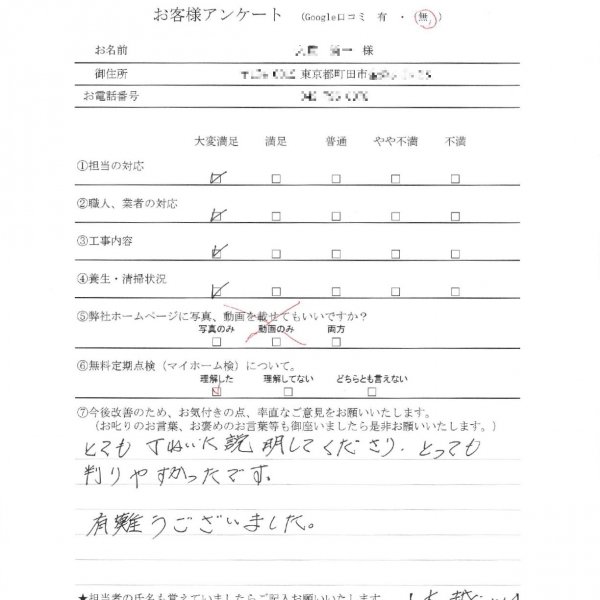 お客様アンケート (Google口コミ 有 ・ 無)
お名前 様
御住所 東京都町田市
お電話番号
大変満足 満足 普通 やや不満 不満
①担当の対応
②職人、業者の対応
③工事内容
④養生・清掃状況
⑤弊社ホームページに写真、動画を載せてもいいですか?
写真のみ 動画のみ 両方
⑥無料定期点検(マイホーム検)について。
理解した 理解してない どちらとも言えない
⑦今後改善のため、お気付きの点、率直なご意見をお願いいたします。
(お叱りのお言葉、お褒めのお言葉等も御座いましたら是非お願いいたします。)
とても丁ねいに説明してくださり、とっても
判りやすかったです。
有難うございました。
★担当者の氏名も覚えていましたらご記入お願いいたします。